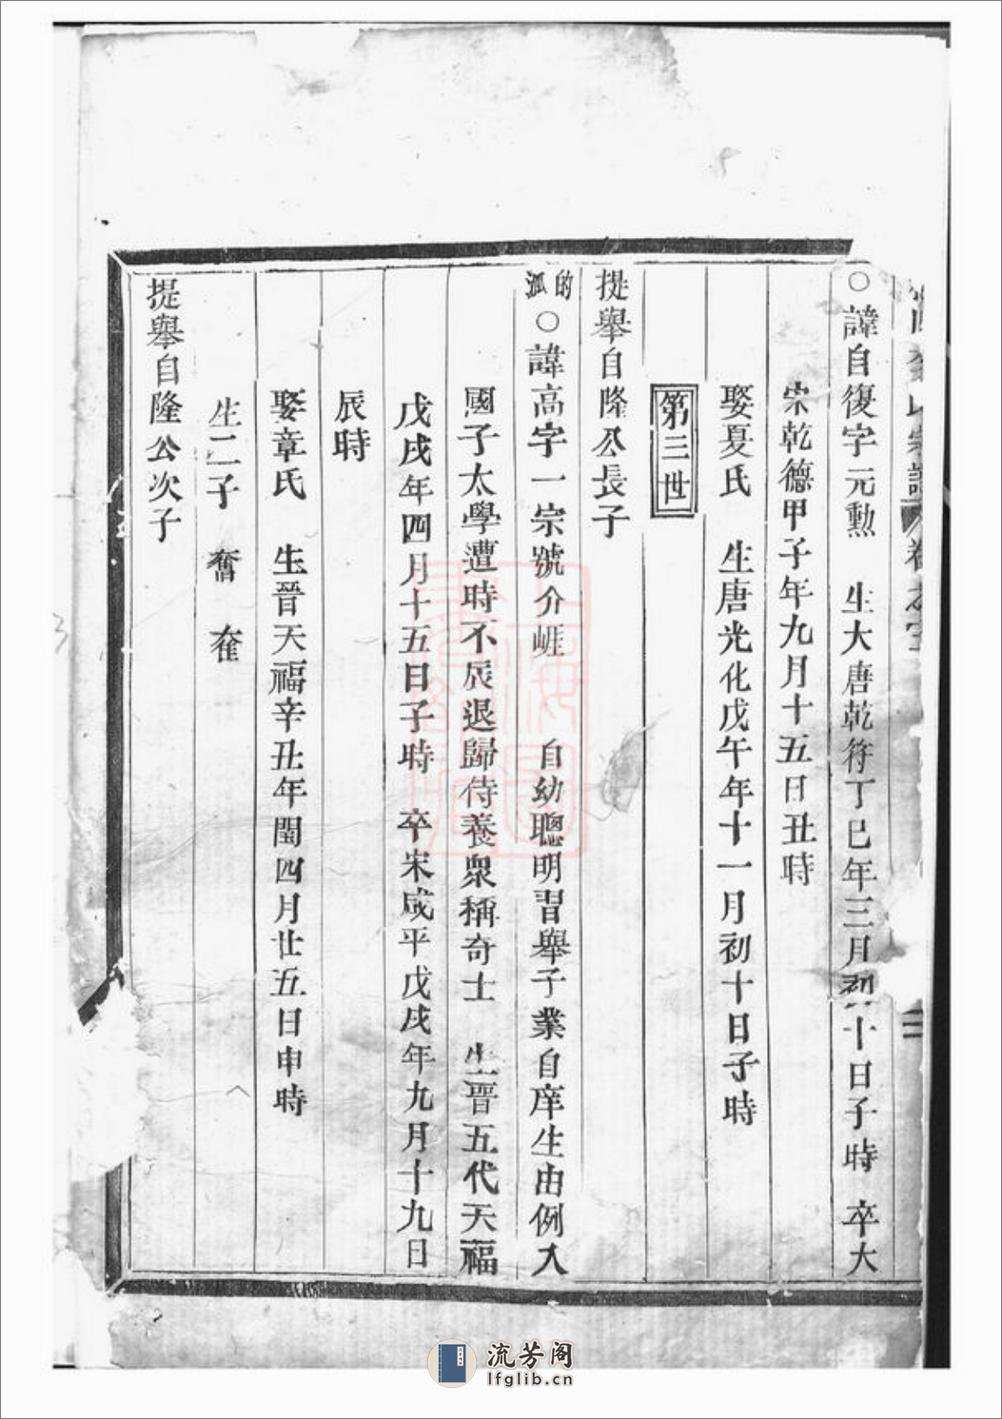 氏宗譜 卷
○諱自復字元勲 生大唐乾符丁巳年三月初十日子時 卒大
宋乾德甲子年九月十五日丑時
娶夏氏 生唐光化戊午年十一月初十日子時
第三世
提舉自隆公長子
的派○諱高字一宗號介崕 自幼聰明習舉子業自庠生由例入
國子太學遭時不辰退歸侍養衆稱奇士 生晉五代天福
戊戌年四月十五日子時 卒宋咸平戊戌年九月十九日
辰時
娶章氏 生晉天福辛丑年閏四月廿五日申時
生二子 奮 奞
提舉自隆公次子
流芳阁
lfglib.cn